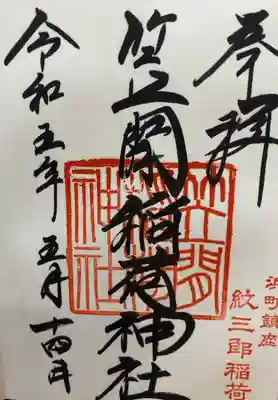 奉拝
浜町鎮座
紋三郎稲荷
笠間稲荷神社
笠間
稲荷
神社
令和五年五月十四日